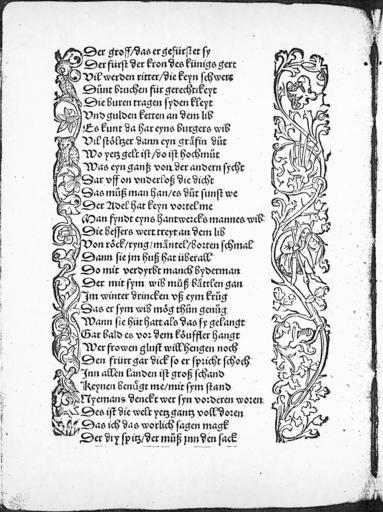 Der groff/das er gefürstet sy
Der fürst der kron des künigs gert
Vil werden ritter/die keyn schwert
Dünt bruchen für gerechtikeyt
Die buren tragen syden kleyt
Vnd gulden ketten an dem lib
Es kunt da har eyns burgers wib
Vil stöltzer dann eyn gräfin düt
Wo yetz gelt ist/do ist hochmüt
Was eyn ganß von der andern sycht
Dar vff on vnderloß sie dicht
Das müß man han/es düt sunst we
Der Adel hat keyn vortel me
Man fyndt eyns hantwercks mannes wib
Die bessers wert treyt an dem lib
Von röck/ryng/mäntel/borten schmal
Dann sie jm huß hat überall
Do mit verdyrbt manch byderman
Der mit sym wib müß bättlen gan
Im winter drincken vß eym krüg
Das er sym wib mög thün genüg
Wann sie hüt hatt als das sy gelangt
Gar bald es vor dem köuffler hangt
Wer frowen glust will hengen noch
Den frürt gar dick so er spricht schoch
Inn allen landen ist groß schand
Keynen benügt me/mit sym stand
Nyemans denckt wer syn vorderen woren
Des ist die welt yetz gantz voll doren
Das ich das worlich sagen magk
Der dry spitz/der müß jnn den sack